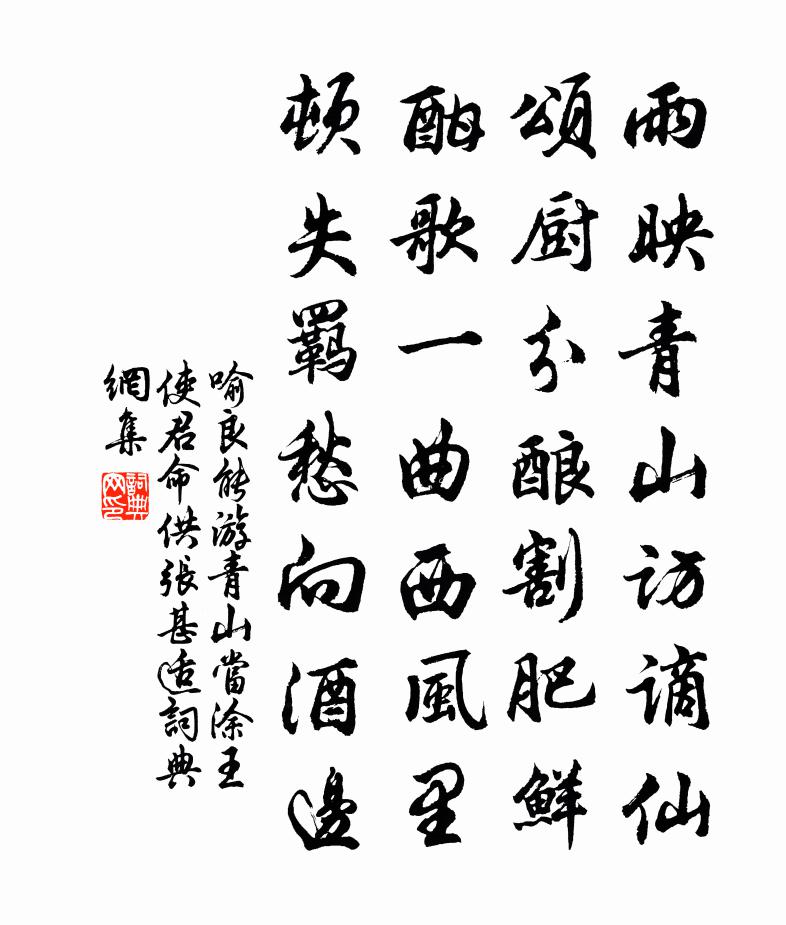 雨映青山訪謫仙
頌厨分酿割肥鮮
酣歌一曲西風里
頓失羈愁向酒邊
喻良能游青山當涂王
使君命供張甚适詞典
網集
詞典網印